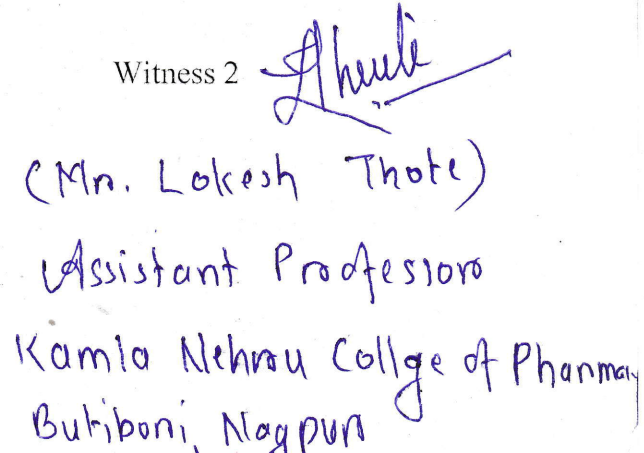 Witness 2
(Mr. Lokesh Thote)
Assistant Professor
Kamla Nehru Collge of Pharmacy
Butibori, Nagpur